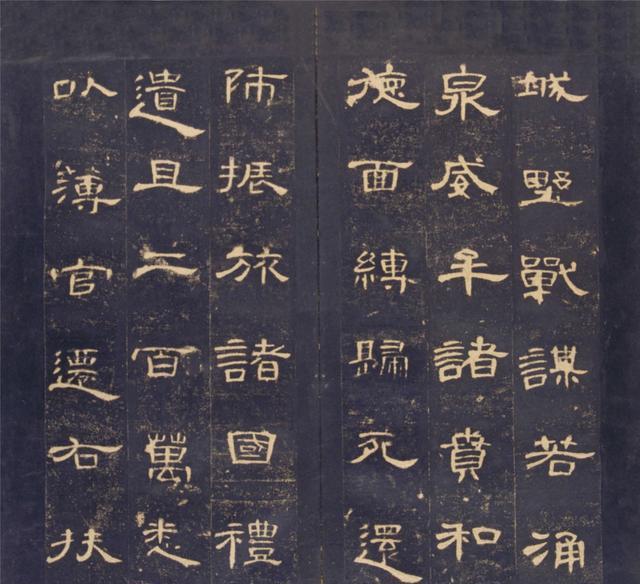 城野戰謀若涌
泉威牟諸賁和
德面縛歸死還
師振旅諸國禮
遺且二百萬悉
以薄官還右扶